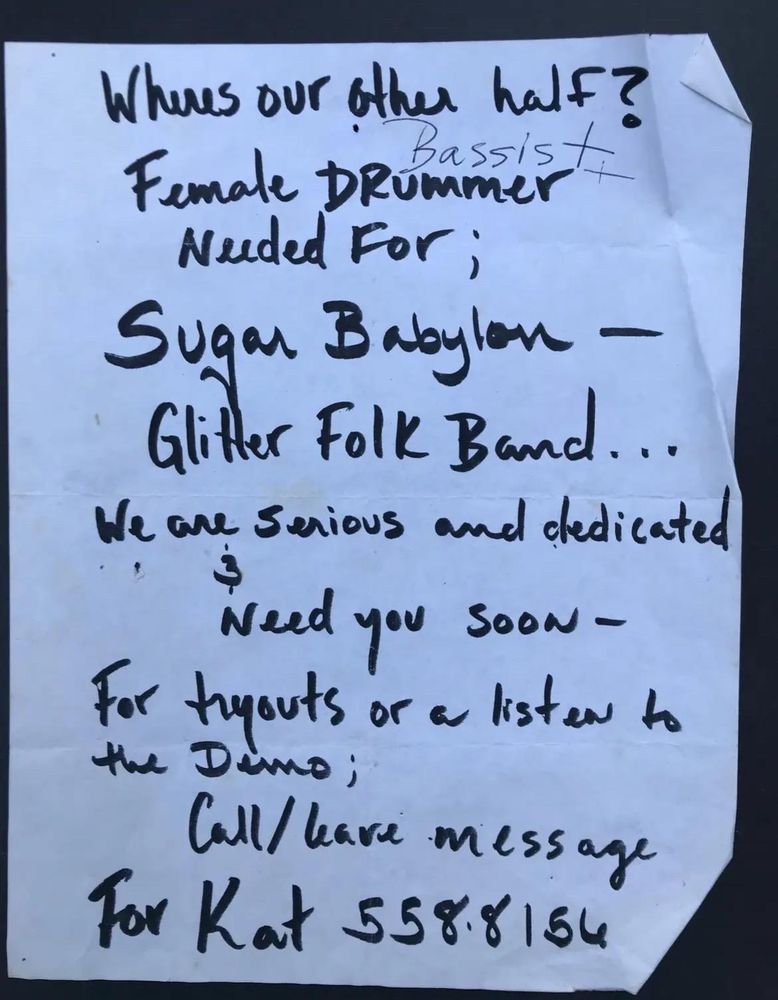 Wheres our other half?
Bassist +
Female DRummer
Needed For;
Sugar Babylon —
Glitter Folk Band...
We are serious and dedicated
&
Need you soon –
For tryouts or a listen to
the Demo;
Call/leave message
For Kat 558.8156